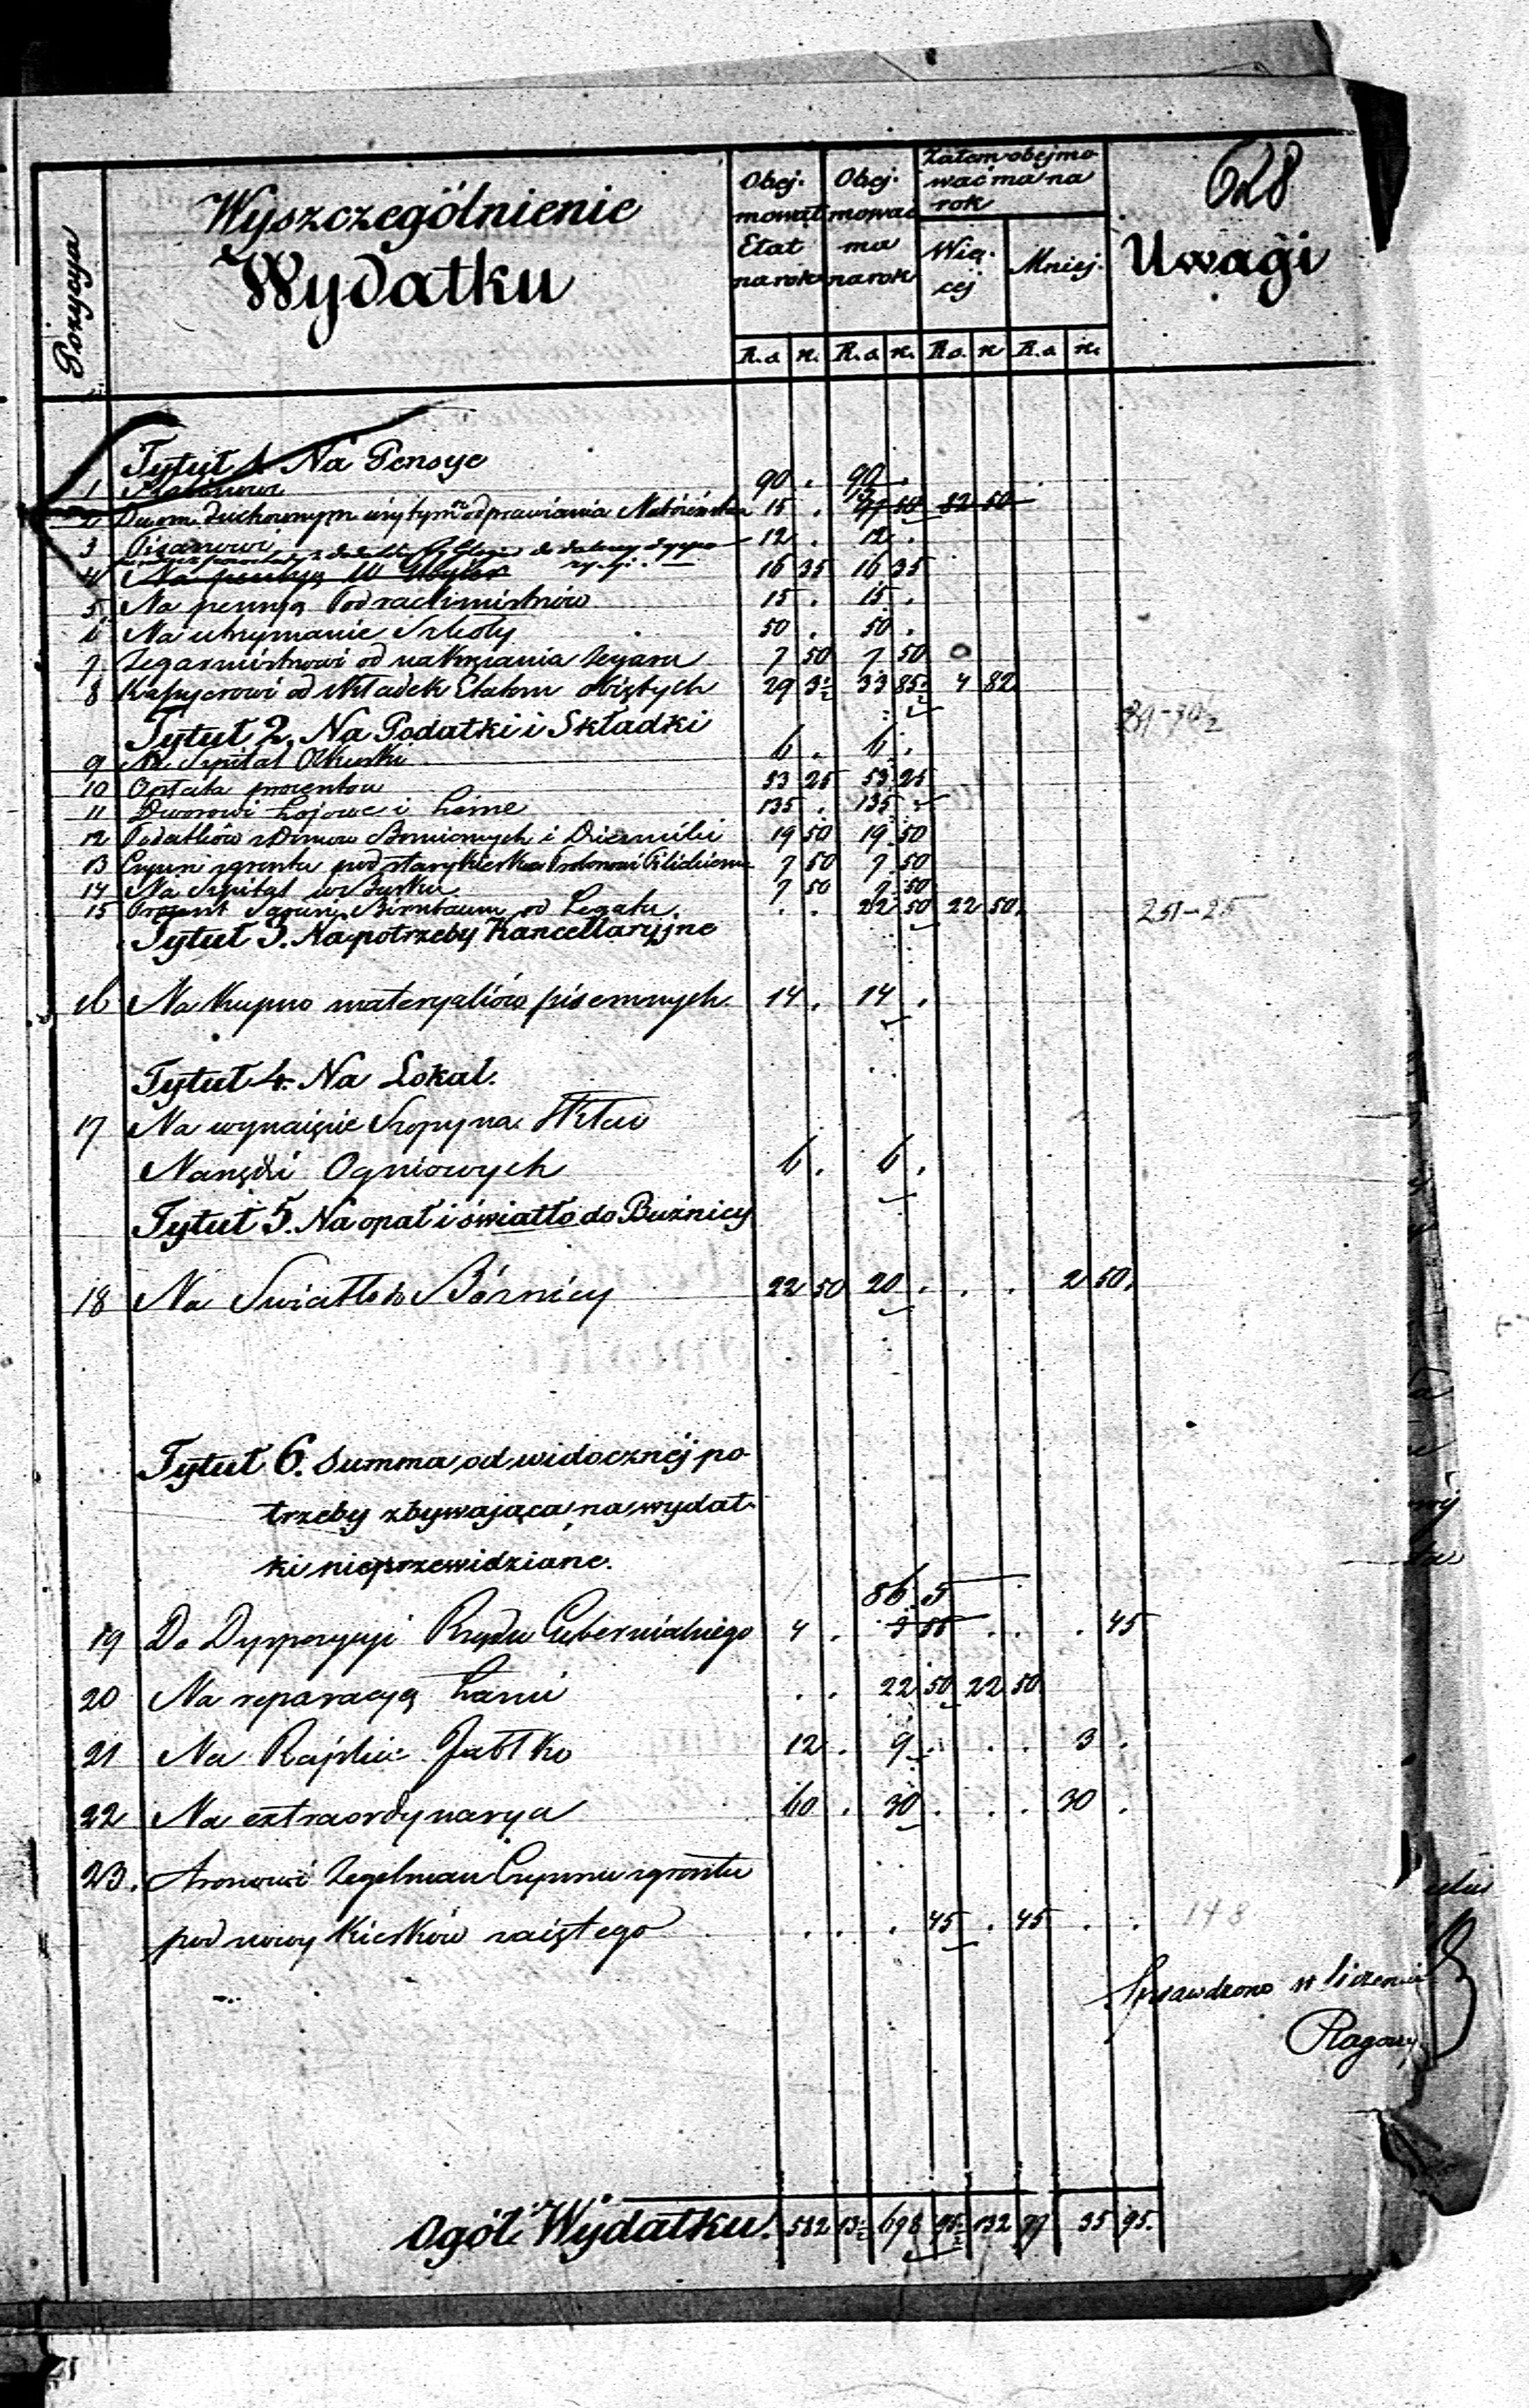 628
Pozycya
Wyszczególnienie
Wydatku
Obej-
mował
Etat
na rok
Obej-
mować
ma
na rok
Zatem obejmo
wać ma na
rok
Wię-
cej
Mniej.
Uwagi
R.s. k. R.s. k. R.s. k. R.s. k.
Tytuł 1. Na Pensye
1 Rabinowi 90 . 90 .
2 Dwom duchownym odprawiania 15 . 97 50 82 50
3 Pisarzowi 12 . 12 .
4 16 35 16 35
5 Na pensyą Podrachmistrzów 15 . 15 .
6 Na utrzymanie Szkoły 50 . 50 .
7 Zegarmistrzowi od nakręcania zegaru 7 50 7 50
8 Kassyerowi od składek Etatem objętych 29 3½ 33 85½ 4 82
Tytuł 2. Na Podatki i Składki
9 Na Szpital Olkuski 6 . 6 .
10 Opłata procentow 53 25 53 25
11 Dworowi Łojowe i 135 . 135 .
12 Podatków z Domow Bożniczych i 19 50 19 50
13 Czynsz z gruntu pod stary kierkow 7 50 7 50
14 Na Szpital w 7 50 7 50
15 Procent Birnbaum od Legatu . . 22 50 22 50
251-25
Tytuł 3. Na potrzeby Kancellaryjne
16 Na kupno materyałów pisemnych 14 . 14 .
Tytuł 4. Na Lokal.
17 Na wynajęcie Szopy na Skład
Narzędzi Ogniowych 6 . 6 .
Tytuł 5. Na opał i światło do Buźnicy
18 Na Swiatło do Bóżnicy 22 50 20 . . . 2 50.
Tytuł 6. Summa od widocznéj po-
trzeby zbywająca, na wydat-
ki nieprzewidziane.
86 5
19 Do Dyspozycyi Rządu Gubernialnego 4 . 3 55 . . . 45
20 Na reparacyą Łazni . . 22 50 22 50
21 Na Rajskie Jabłko 12 . 9 . . . 3 .
22 Na extraordynarya 60 . 30 . . . 30 .
23. Aronowi Zegelman Czynszu z gruntu
pod nowy Kierków zajętego . . . 45 . 45 . .
148
Sprawdzono
Ogół Wydatku. 582 13½ 698 95½ 132 77 35 95.